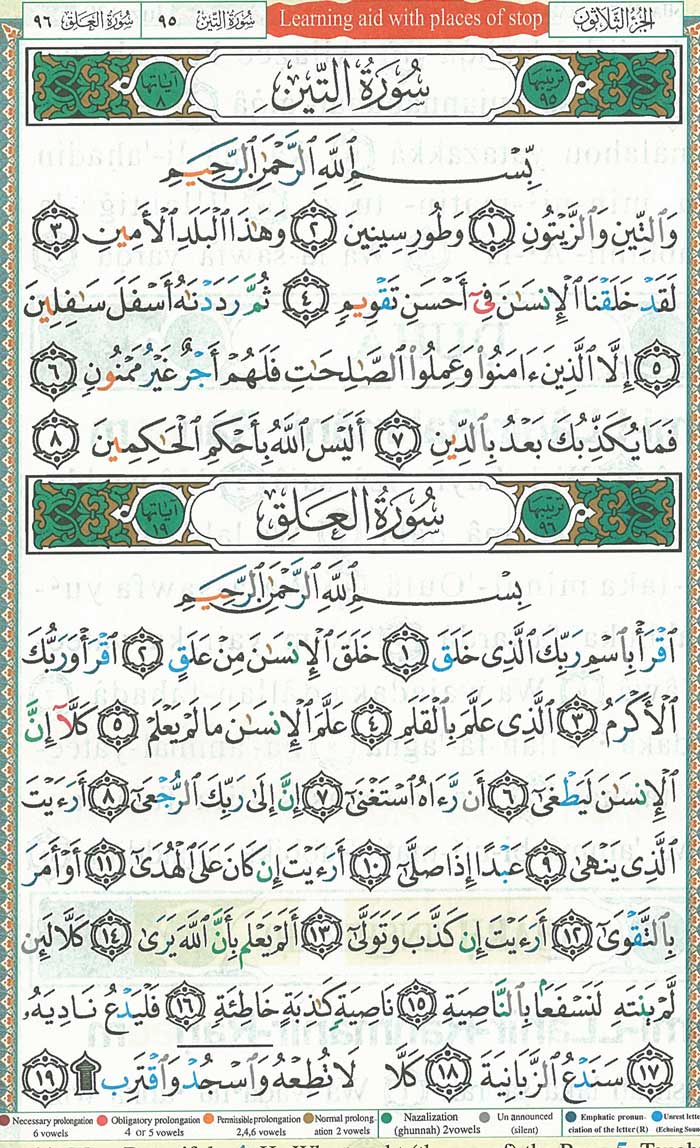 الجزء الثلاثون
Learning aid with places of stop
سورة التين ٩٥
سورة العلق ٩٦
ترتيبها ٩٥
سُورَةُ التِّين
آياتها ٨
بِسْمِ ٱللَّهِ ٱلرَّحْمَٰنِ ٱلرَّحِيمِ
وَٱلتِّينِ وَٱلزَّيْتُونِ ١ وَطُورِ سِينِينَ ٢ وَهَٰذَا ٱلْبَلَدِ ٱلْأَمِينِ ٣
لَقَدْ خَلَقْنَا ٱلْإِنسَٰنَ فِىٓ أَحْسَنِ تَقْوِيمٍ ٤ ثُمَّ رَدَدْنَٰهُ أَسْفَلَ سَٰفِلِينَ
٥ إِلَّا ٱلَّذِينَ ءَامَنُوا۟ وَعَمِلُوا۟ ٱلصَّٰلِحَٰتِ فَلَهُمْ أَجْرٌ غَيْرُ مَمْنُونٍ ٦
فَمَا يُكَذِّبُكَ بَعْدُ بِٱلدِّينِ ٧ أَلَيْسَ ٱللَّهُ بِأَحْكَمِ ٱلْحَٰكِمِينَ ٨
ترتيبها ٩٦
سُورَةُ العَلَق
آياتها ١٩
بِسْمِ ٱللَّهِ ٱلرَّحْمَٰنِ ٱلرَّحِيمِ
ٱقْرَأْ بِٱسْمِ رَبِّكَ ٱلَّذِى خَلَقَ ١ خَلَقَ ٱلْإِنسَٰنَ مِنْ عَلَقٍ ٢ ٱقْرَأْ وَرَبُّكَ
ٱلْأَكْرَمُ ٣ ٱلَّذِى عَلَّمَ بِٱلْقَلَمِ ٤ عَلَّمَ ٱلْإِنسَٰنَ مَا لَمْ يَعْلَمْ ٥ كَلَّآ إِنَّ
ٱلْإِنسَٰنَ لَيَطْغَىٰٓ ٦ أَن رَّءَاهُ ٱسْتَغْنَىٰٓ ٧ إِنَّ إِلَىٰ رَبِّكَ ٱلرُّجْعَىٰٓ ٨ أَرَءَيْتَ
ٱلَّذِى يَنْهَىٰ ٩ عَبْدًا إِذَا صَلَّىٰٓ ١٠ أَرَءَيْتَ إِن كَانَ عَلَى ٱلْهُدَىٰٓ ١١ أَوْ أَمَرَ
بِٱلتَّقْوَىٰٓ ١٢ أَرَءَيْتَ إِن كَذَّبَ وَتَوَلَّىٰٓ ١٣ أَلَمْ يَعْلَم بِأَنَّ ٱللَّهَ يَرَىٰ ١٤ كَلَّا لَئِن
لَّمْ يَنتَهِ لَنَسْفَعًۢا بِٱلنَّاصِيَةِ ١٥ نَاصِيَةٍ كَٰذِبَةٍ خَاطِئَةٍ ١٦ فَلْيَدْعُ نَادِيَهُۥ
١٧ سَنَدْعُ ٱلزَّبَانِيَةَ ١٨ كَلَّا لَا تُطِعْهُ وَٱسْجُدْ وَٱقْتَرِب ۩ ١٩
Necessary prolongation 6 vowels
Obligatory prolongation 4 or 5 vowels
Permissible prolongation 2,4,6 vowels
Normal prolongation 2 vowels
Nazalization (ghunnah) 2vowels
Un announced (silent)
Emphatic pronunciation of the letter (R)
Unrest letters (Echoing Sound)